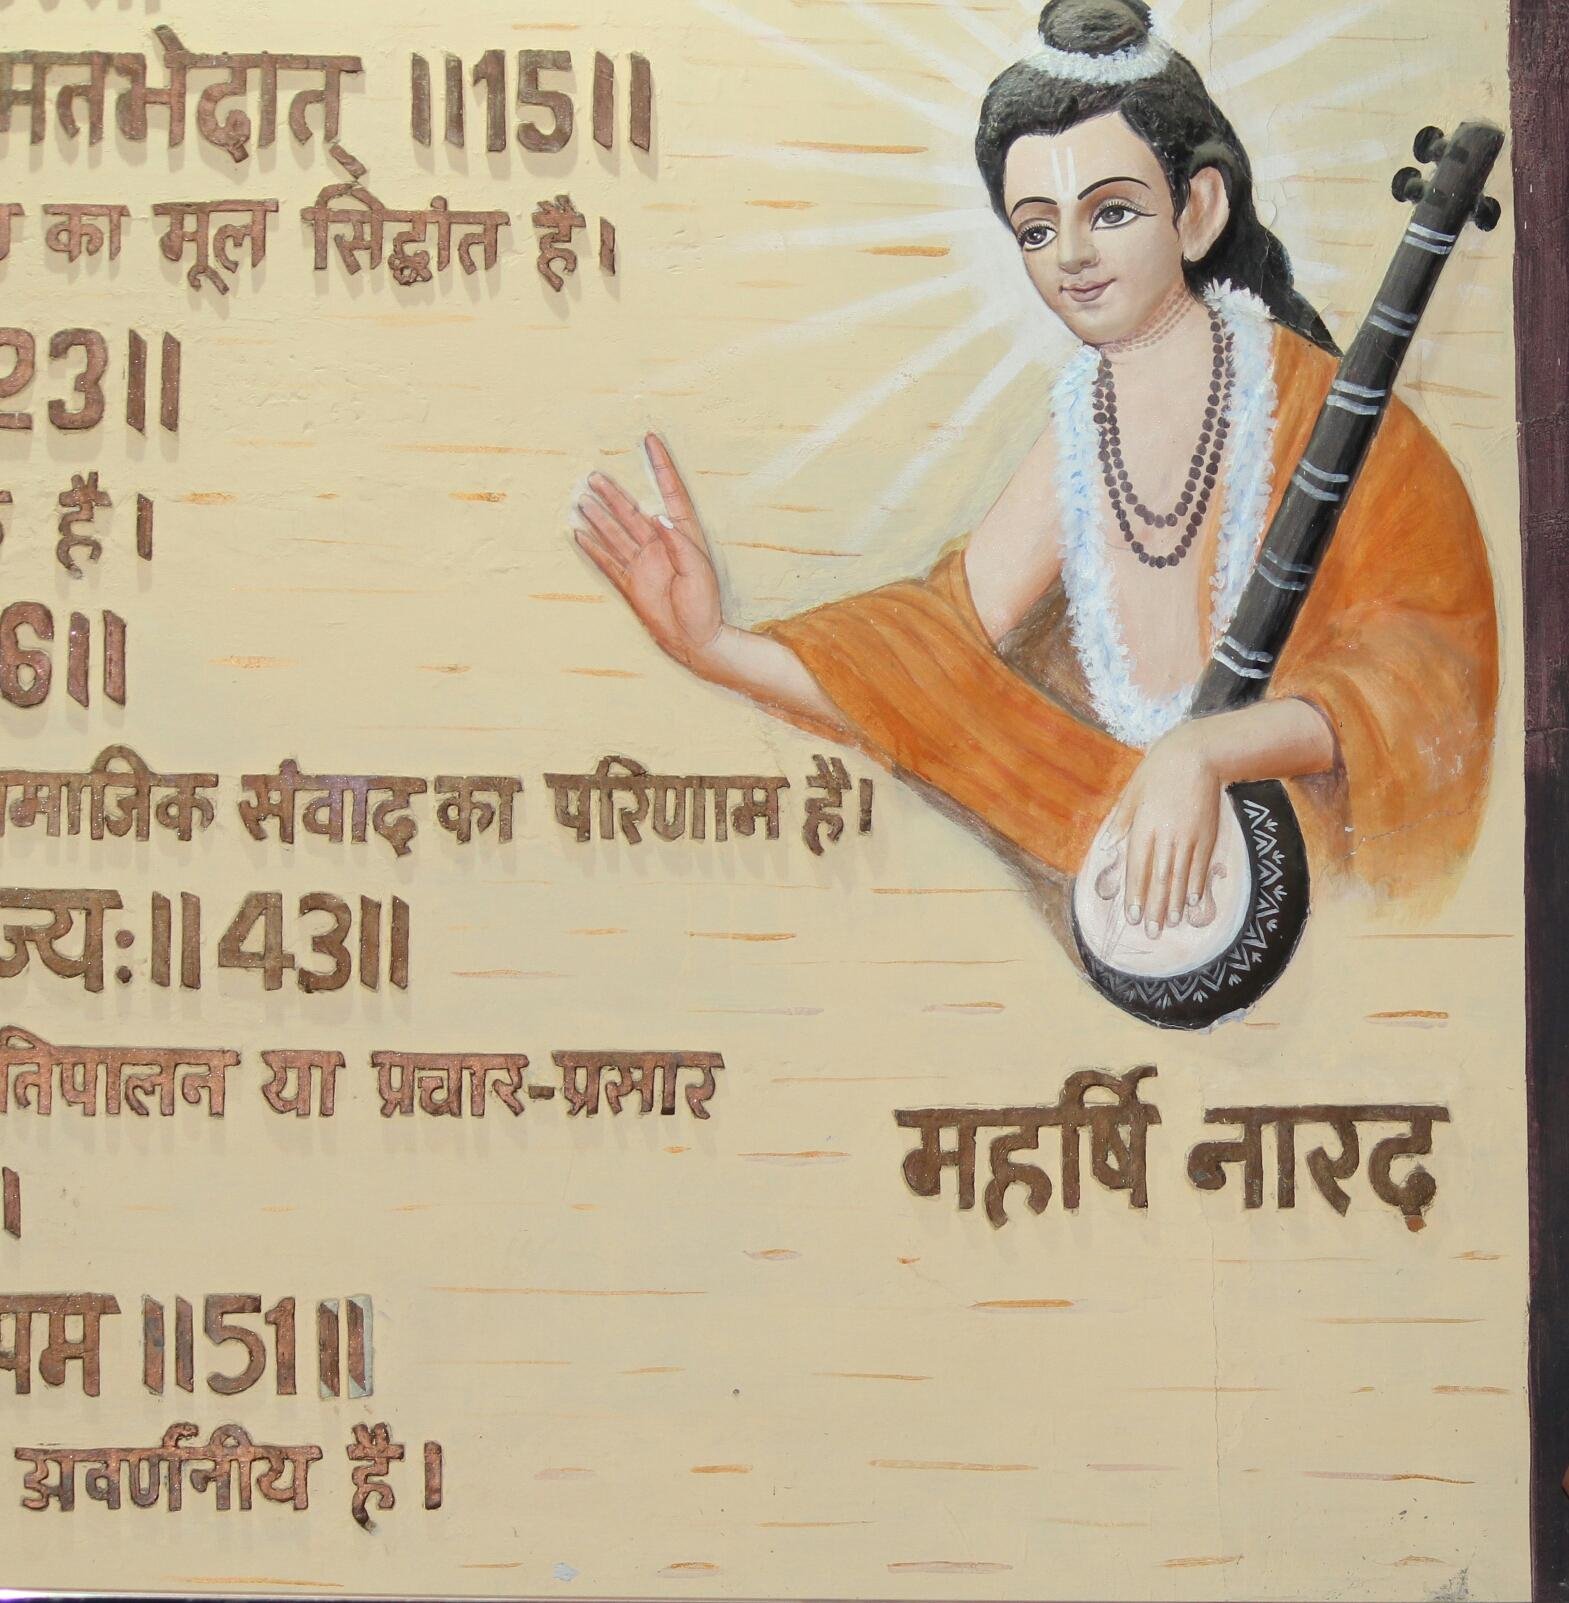 मतभेदात् ॥15॥
का मूल सिद्धांत है।
23॥
है।
6॥
सामाजिक संवाद का परिणाम है।
43॥
या प्रचार-प्रसार
।
महर्षि नारद
॥51॥
अवर्णनीय है।